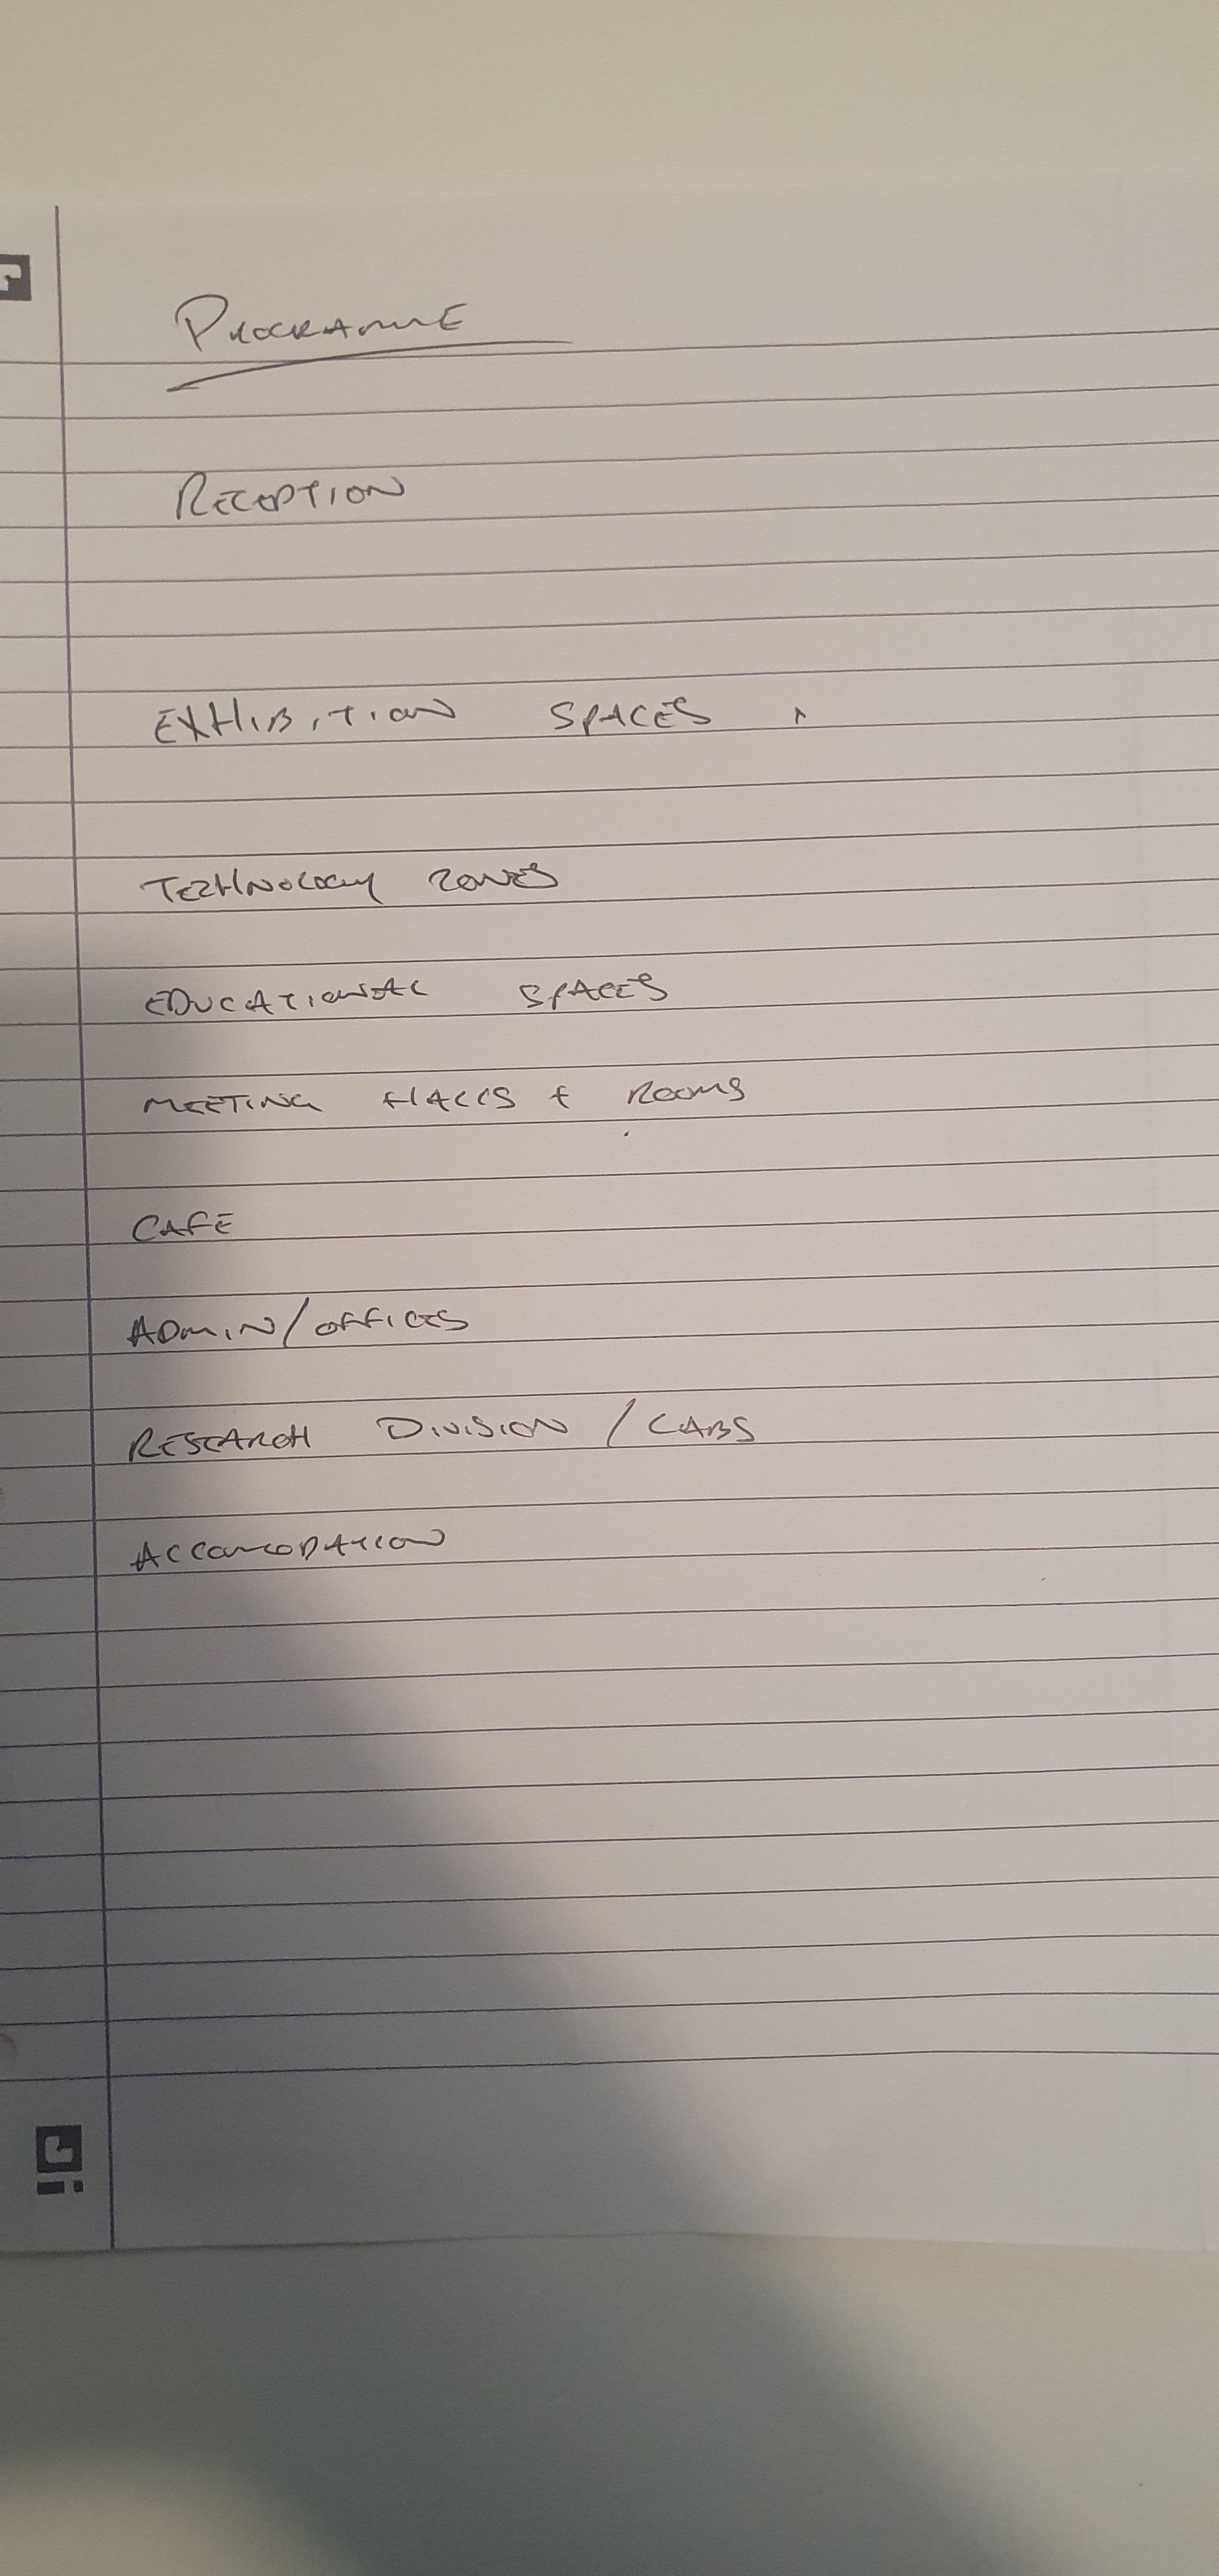 PROGRAMME
RECEPTION
EXHIBITION SPACES
TECHNOLOGY ZONES
EDUCATIONAL SPACES
MEETING HALLS + ROOMS
CAFE
ADMIN/OFFICES
RESEARCH DIVISION / LABS
ACCOMODATION